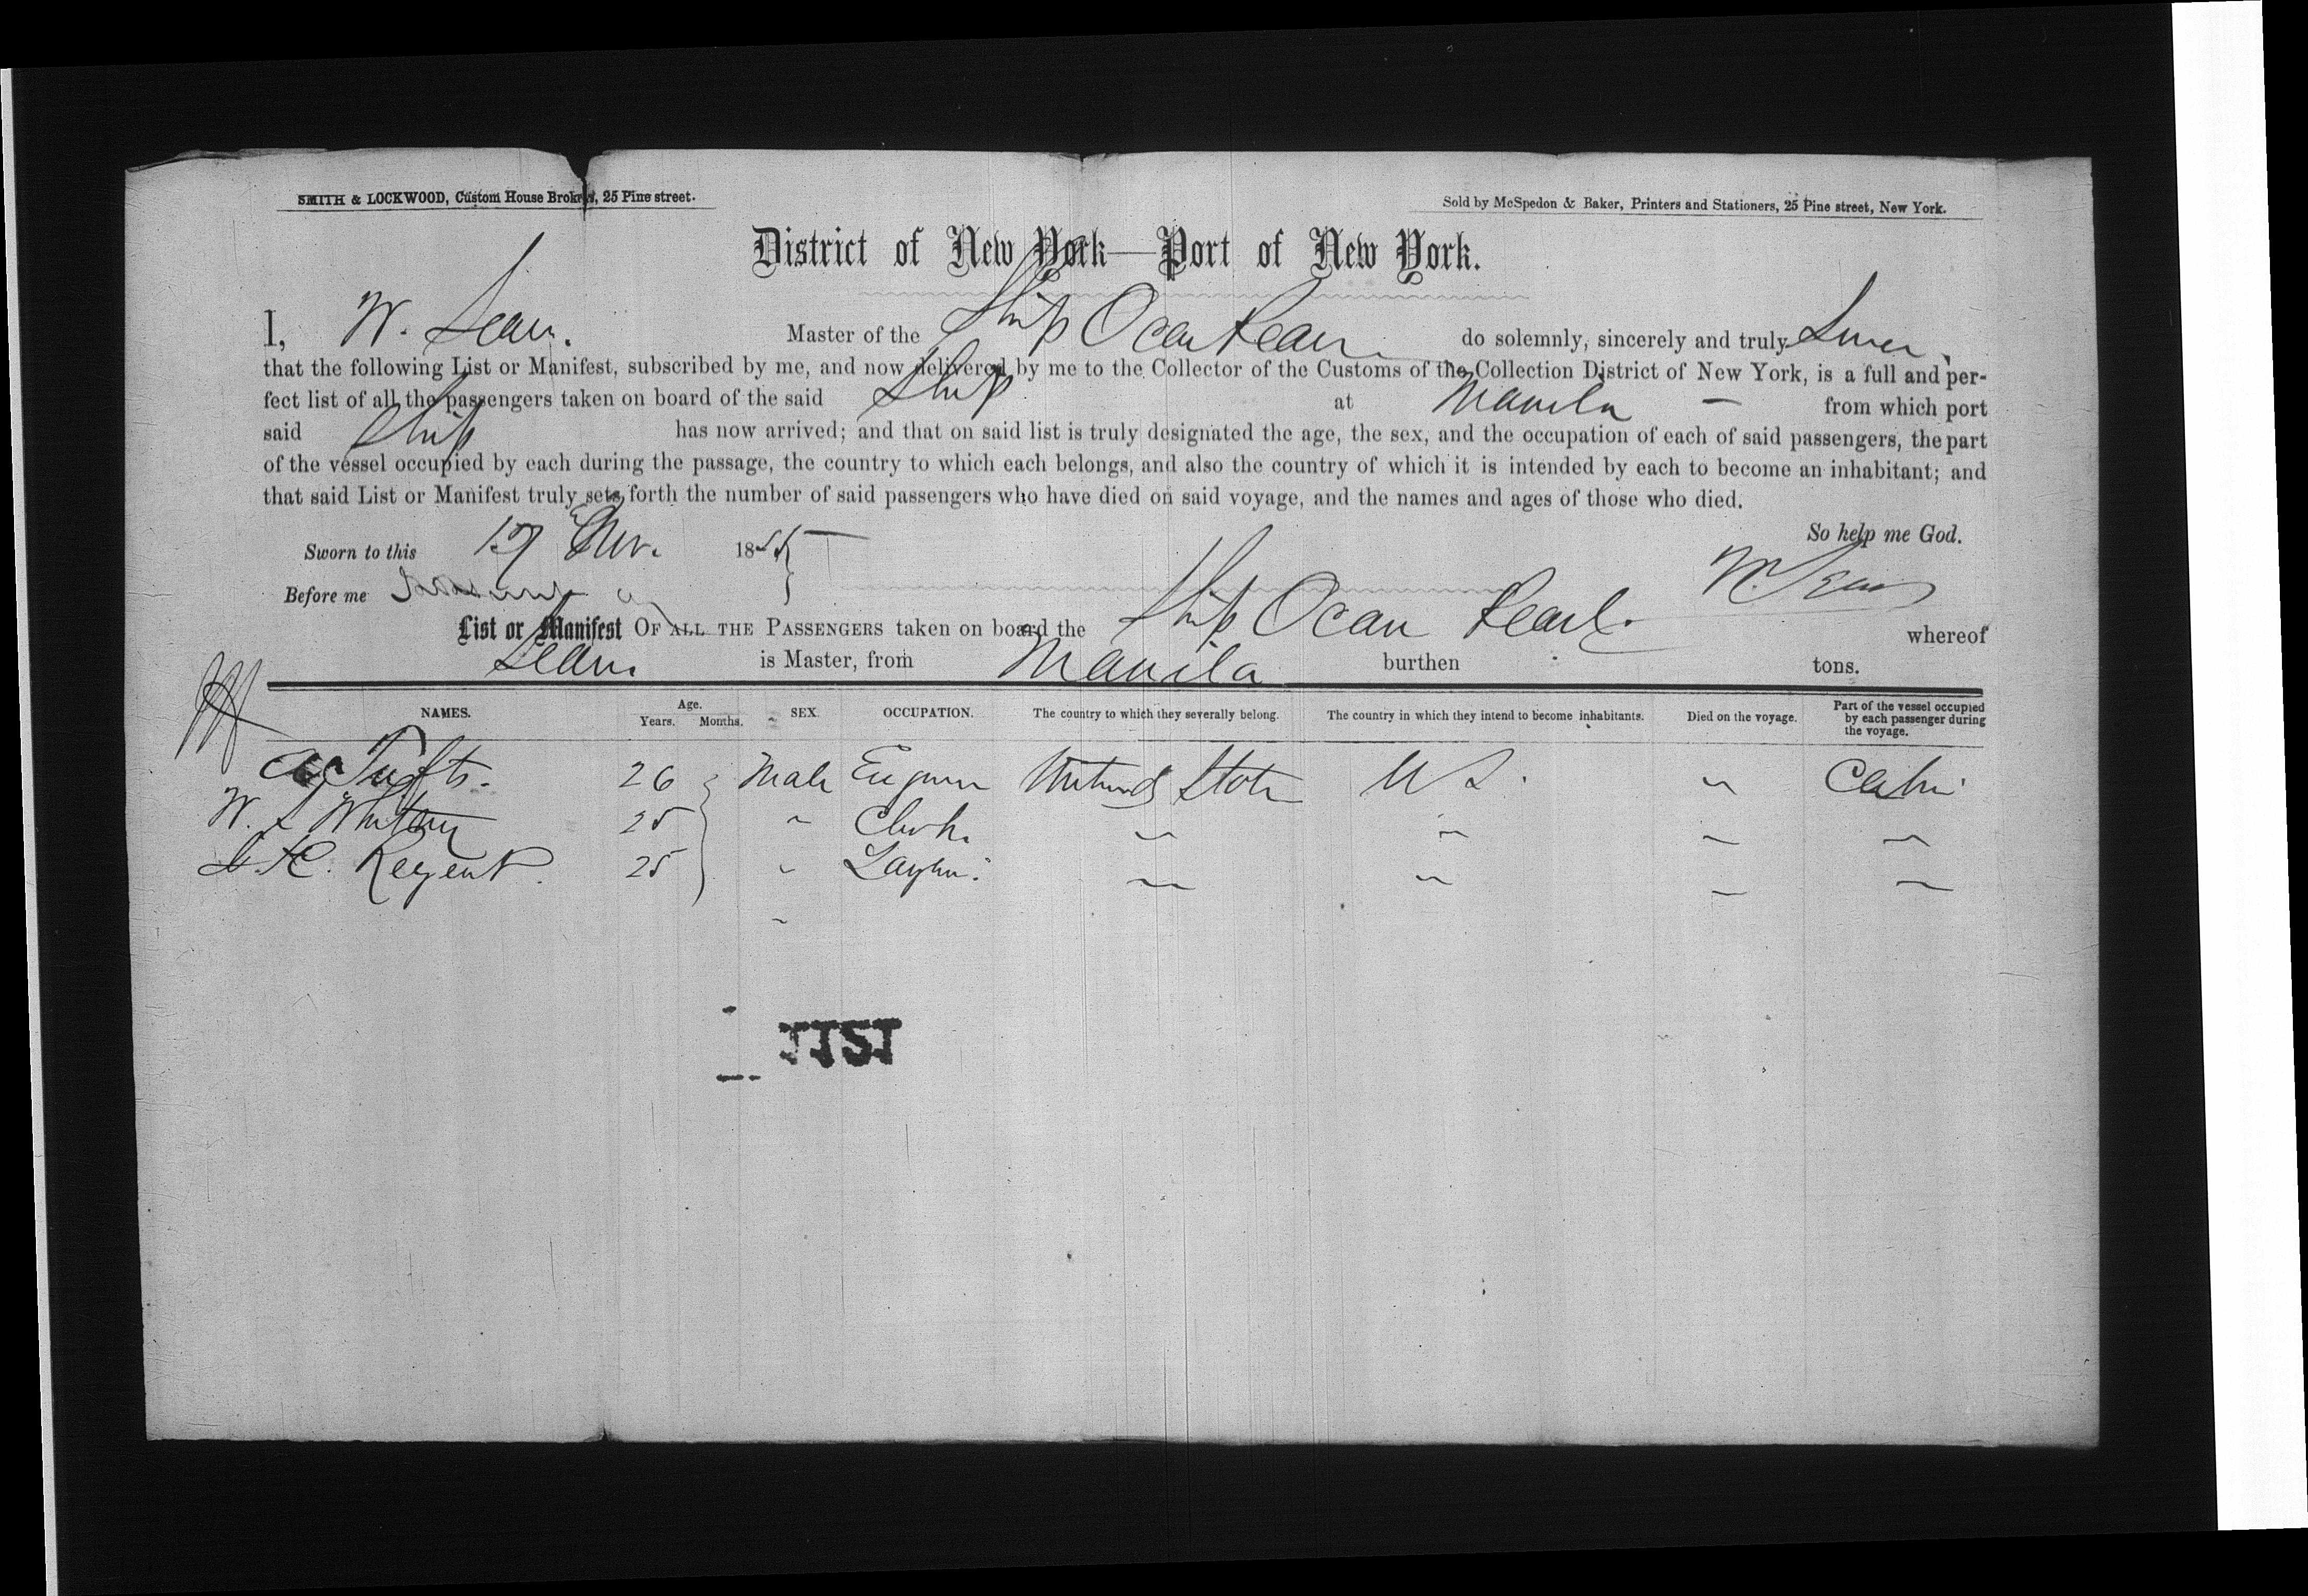 SMITH & LOCKWOOD, Custom House Brokers, 25 Pine street.
Sold by McSpedon & Baker, Printers and Stationers, 25 Pine street, New York.
District of New York—Port of New York.
I, W. Sears. Master of the Ship Ocean Pearl do solemnly, sincerely and truly Swear
that the following List or Manifest, subscribed by me, and now delivered by me to the Collector of the Customs of the Collection District of New York, is a full and per-
fect list of all the passengers taken on board of the said Ship at Manila — from which port
said Ship has now arrived; and that on said list is truly designated the age, the sex, and the occupation of each of said passengers, the part
of the vessel occupied by each during the passage, the country to which each belongs, and also the country of which it is intended by each to become an inhabitant; and
that said List or Manifest truly sets forth the number of said passengers who have died on said voyage, and the names and ages of those who died.
So help me God.
Sworn to this 1855
W. Sears
Before me
List or Manifest OF ALL THE PASSENGERS taken on board the Ship Ocean Pearl. whereof
Sears is Master, from Manila burthen tons.
NAMES. Age. Years. Months. SEX. OCCUPATION. The country to which they severally belong. The country in which they intend to become inhabitants. Died on the voyage. Part of the vessel occupied by each passenger during the voyage.
Tufts. 26 Male United States U S. " Cabin
W. S Whitney 25 " Clerk. " " " "
Regent. 25 " " " " "